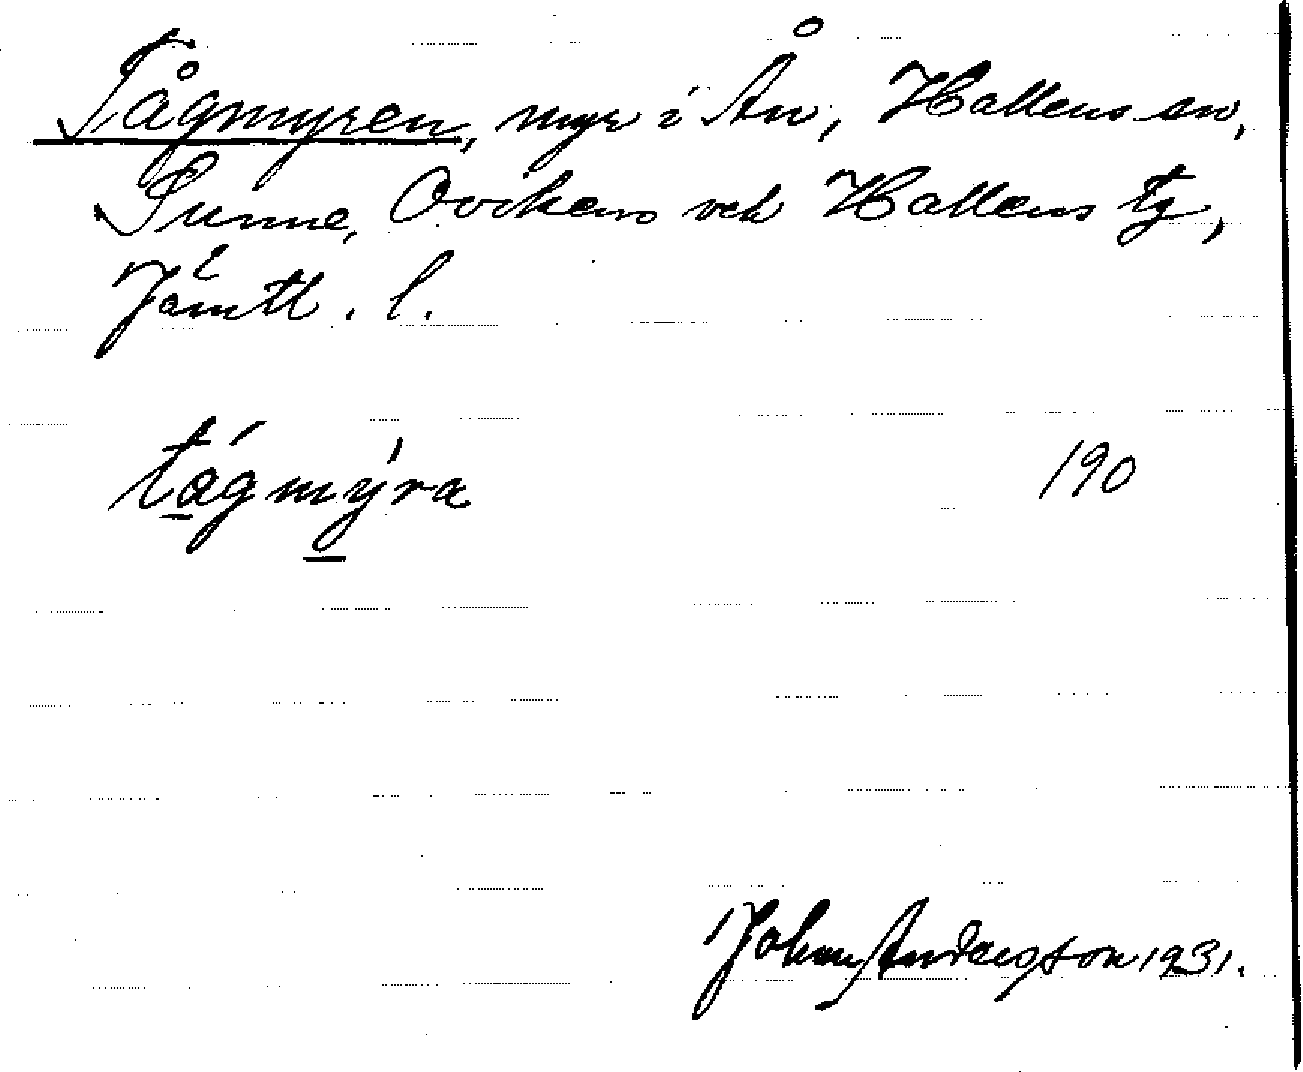 Tågmyren, myr i Ån, Hallens sn,
Sunne, Ovikens och Hallens tg,
Jämtl. l.
tágmýra 190
Johan Andersson 1931.